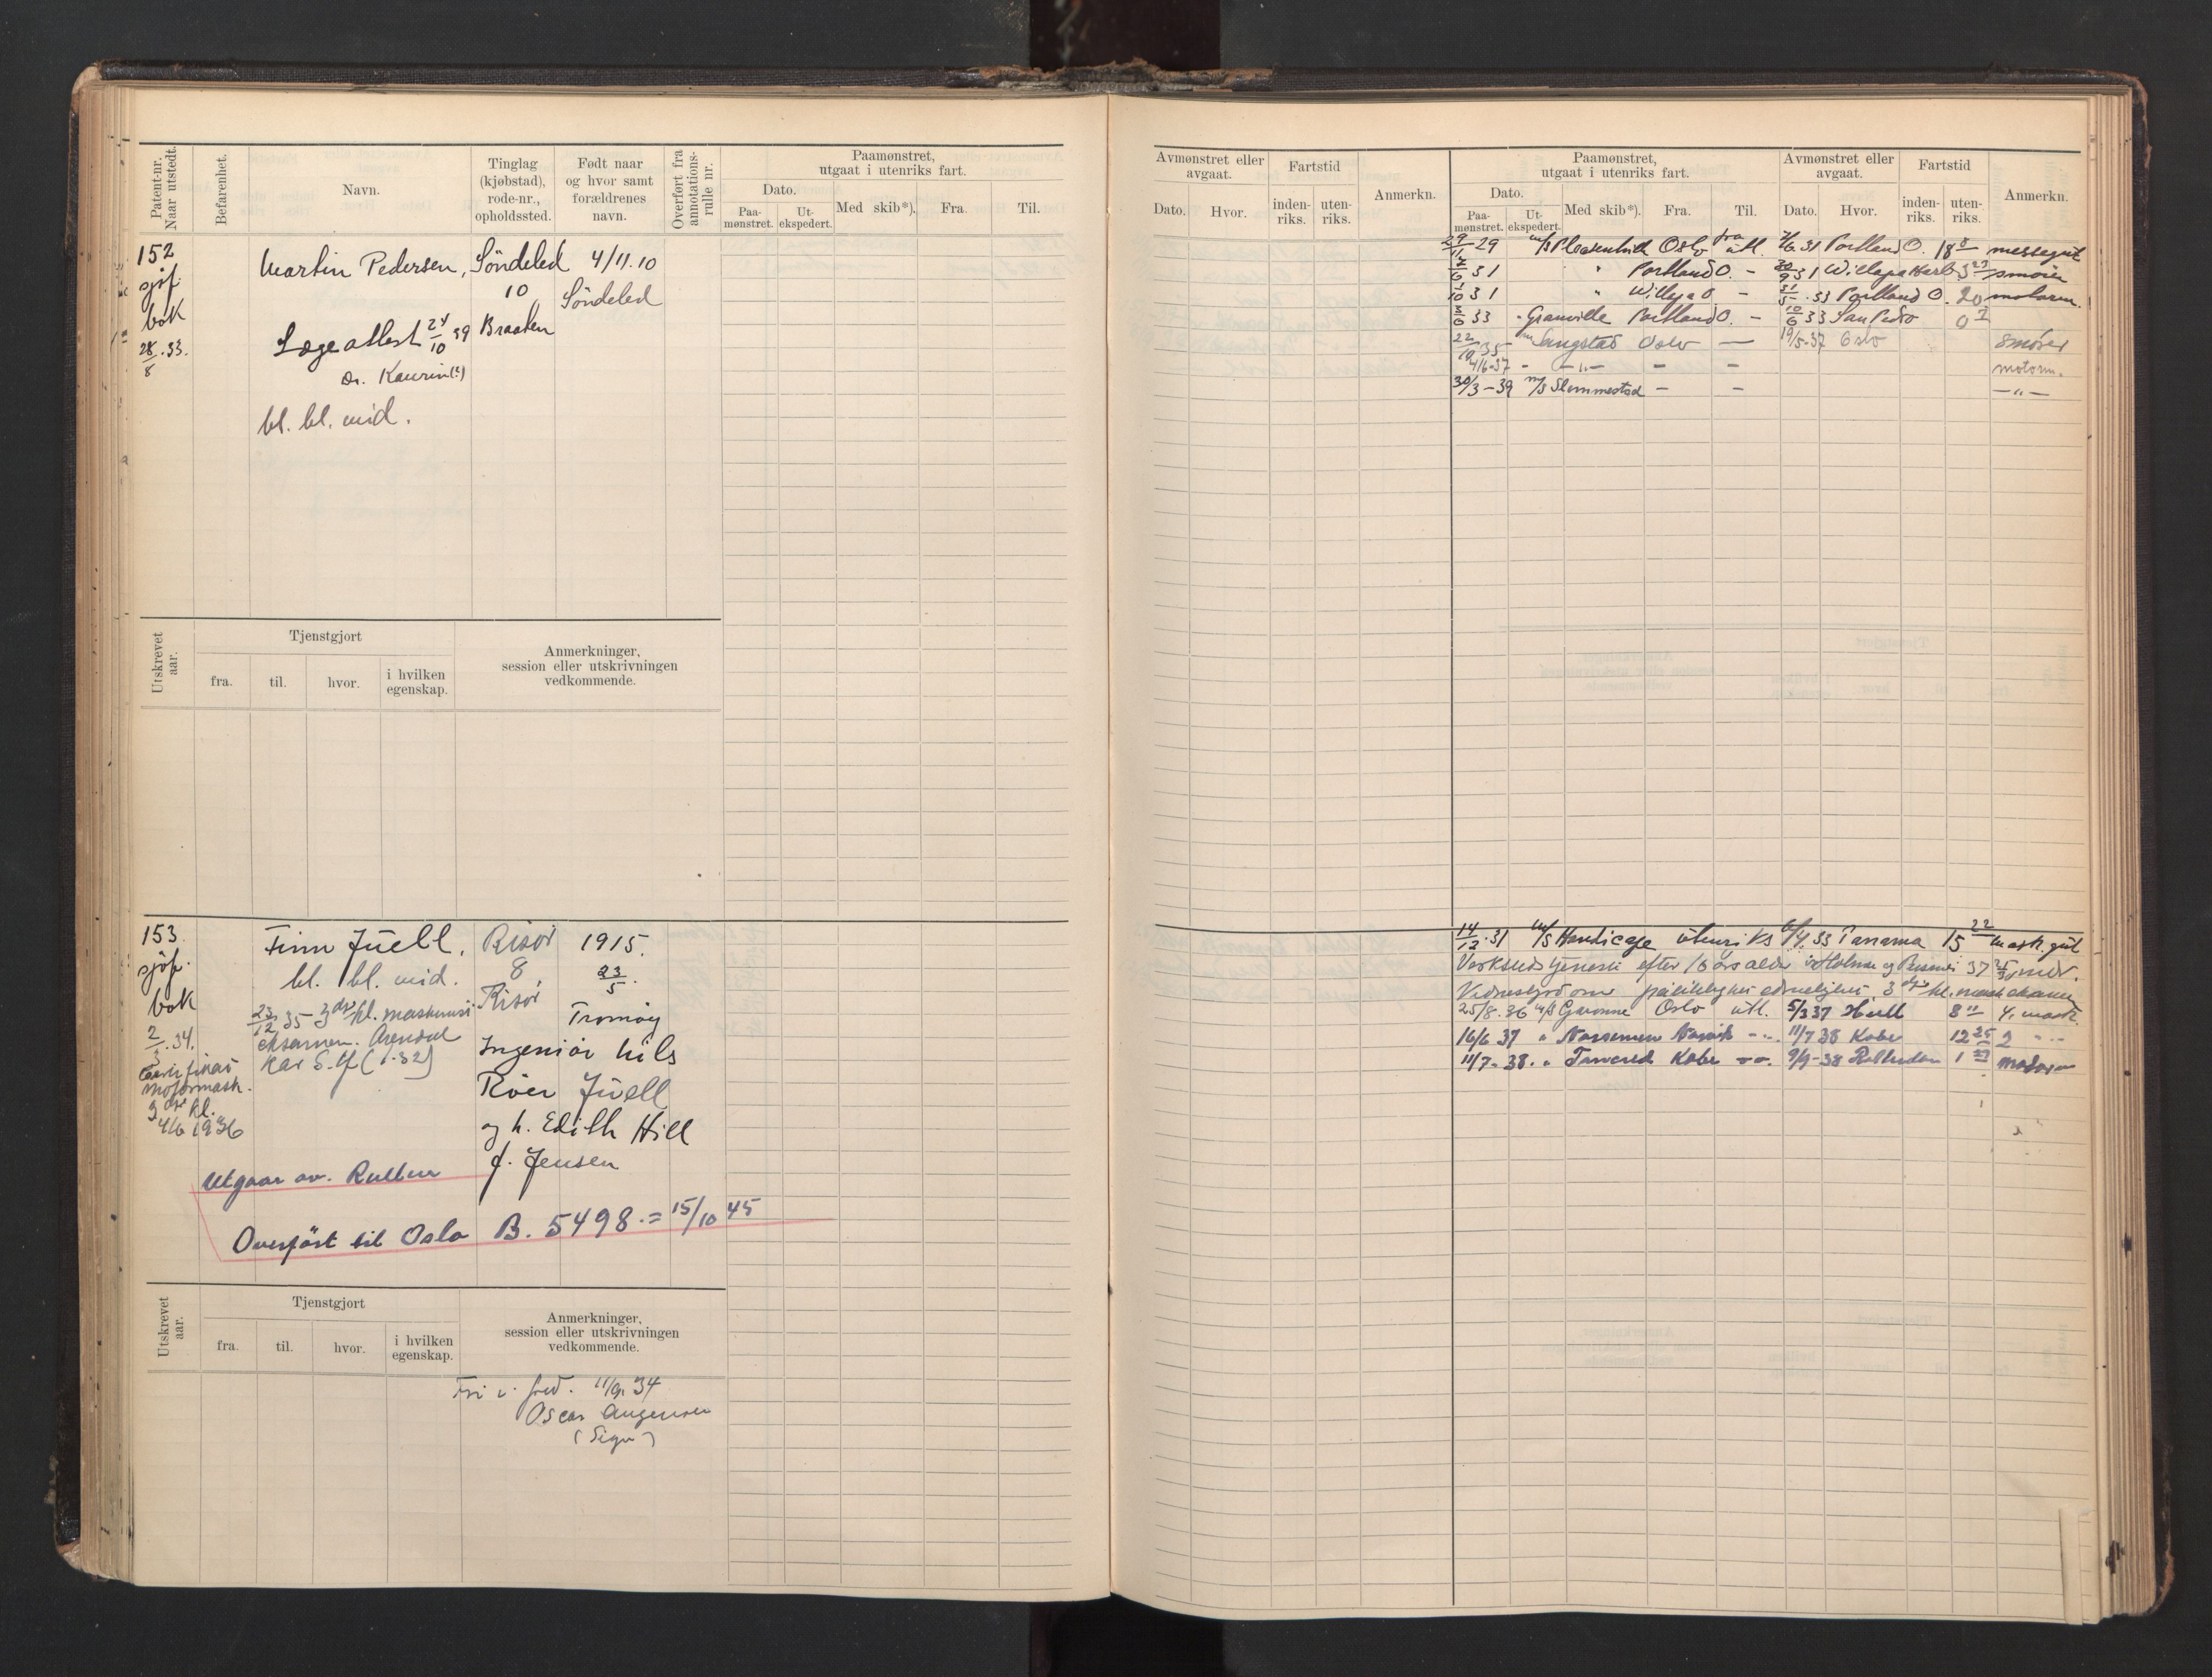 Patent-nr. Naar utstedt.
Befarenhet.
Navn.
Tinglag (kjøbstad), rode-nr., opholdssted.
Født naar og hvor samt forældrenes navn.
Overført fra annotations-rulle nr.
Paamønstret, utgaat i utenriks fart.
Dato.
Paa-mønstret.
Ut-ekspedert.
Med skib*).
Fra.
Til.
152
sjöf.
bok
28/8.33.
Martin Pedersen, Söndeled 4/11.10
10 Söndeled
Lægeattest 24/10 39 Braaten
Dr. Kaurin(?)
bl. bl. mid.
Utskrevet aar.
Tjenstgjort
fra.
til.
hvor.
i hvilken egenskap.
Anmerkninger, session eller utskrivningen vedkommende.
153.
sjöf.
bok
2/3.34.
motormask.
3die kl.
4/6 1936
Finn Juell. Risör 1915.
bl. bl. mid. 8. 23/5.
Risör Tromöy
23/12 35 - 3die kl. maskinist
eksamen. Arendal
Kar S.tf (1.32)
Ingeniör Nils
Röer Juell
og h. Edith Hill
f. Jensen
Utgaar av. Rullen
Overfört til Oslo B. 5498.= 15/10 45
Utskrevet aar.
Tjenstgjort
fra.
til.
hvor.
i hvilken egenskap.
Anmerkninger, session eller utskrivningen vedkommende.
Fri i fred. 11/9.34
Oscar
(Sign)
Avmønstret eller avgaat.
Dato.
Hvor.
Fartstid
inden-riks.
uten-riks.
Anmerkn.
Paamønstret, utgaat i utenriks fart.
Dato.
Paa-mønstret.
Ut-ekspedert.
Med skib*).
Fra.
Til.
Avmønstret eller avgaat.
Dato.
Hvor.
Fartstid
inden-riks.
uten-riks.
Anmerkn.
29/11 29 m/s Oslo fra utl. 31 Portland O. 18 messegut
6 31 " Portland O. - 30/9 31 Willapa Harb 3 23 smörer
1/10 31 " Willapa O - 31/5 .33 Portland O. 20 motorm.
3/6 33 " Granville Portland O. - 10/6 33 San Pedro 0
22/10 35 m/s Sangstad Oslo — 19/5-37 Oslo smörer
4/6-37 - -"- - - motorm.
30/3-39 m/s Slemmestad - - -"-
14/12.31 m/s Handicap utenriks 6/4.33 Panama 15 22 mask.gut
Verkstedstjeneste efter 16 års alder 37 mdr.
Vidnesbyrd om pålitelighet edruelighet, 3die kl. mask eksamen
25/8.36 m/s Garonne Oslo utl. 5/3 37 Hull 8 11 4. mask.
16/6 37 " Norseman Narvik -"- 11/7 38 Kobe 12 25 2 -"-
11/7-38. " Tancred Kobe -"- 9/9-38 Rotterdam 1 29 motorm